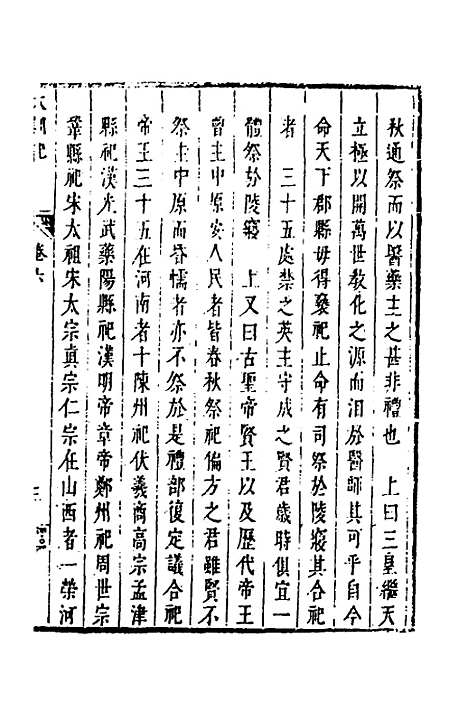 秋通祭而以醫藥主之甚非禮也　上曰三皇繼天
立極以開萬世敎化之源而汨於醫師其可乎自今
命天下郡縣毋得褻祀止命有司祭於陵寢其合祀
者　三十五處禁之英主守成之賢君歲時俱宜一
體祭於陵寢　上又曰古聖帝賢王以及歷代帝王
曾主中原安人民者皆春秋祭祀偏方之君雖賢不
祭主中原而昏懦者亦不祭於是禮部復定議合祀
帝王三十五在河南者十陳州祀伏羲商高宗孟津
縣祀漢光武滎陽縣祀漢明帝章帝鄭州祀周世宗
鞏縣祀宋太祖宋太宗真宗仁宗在山西者一榮河
卷六